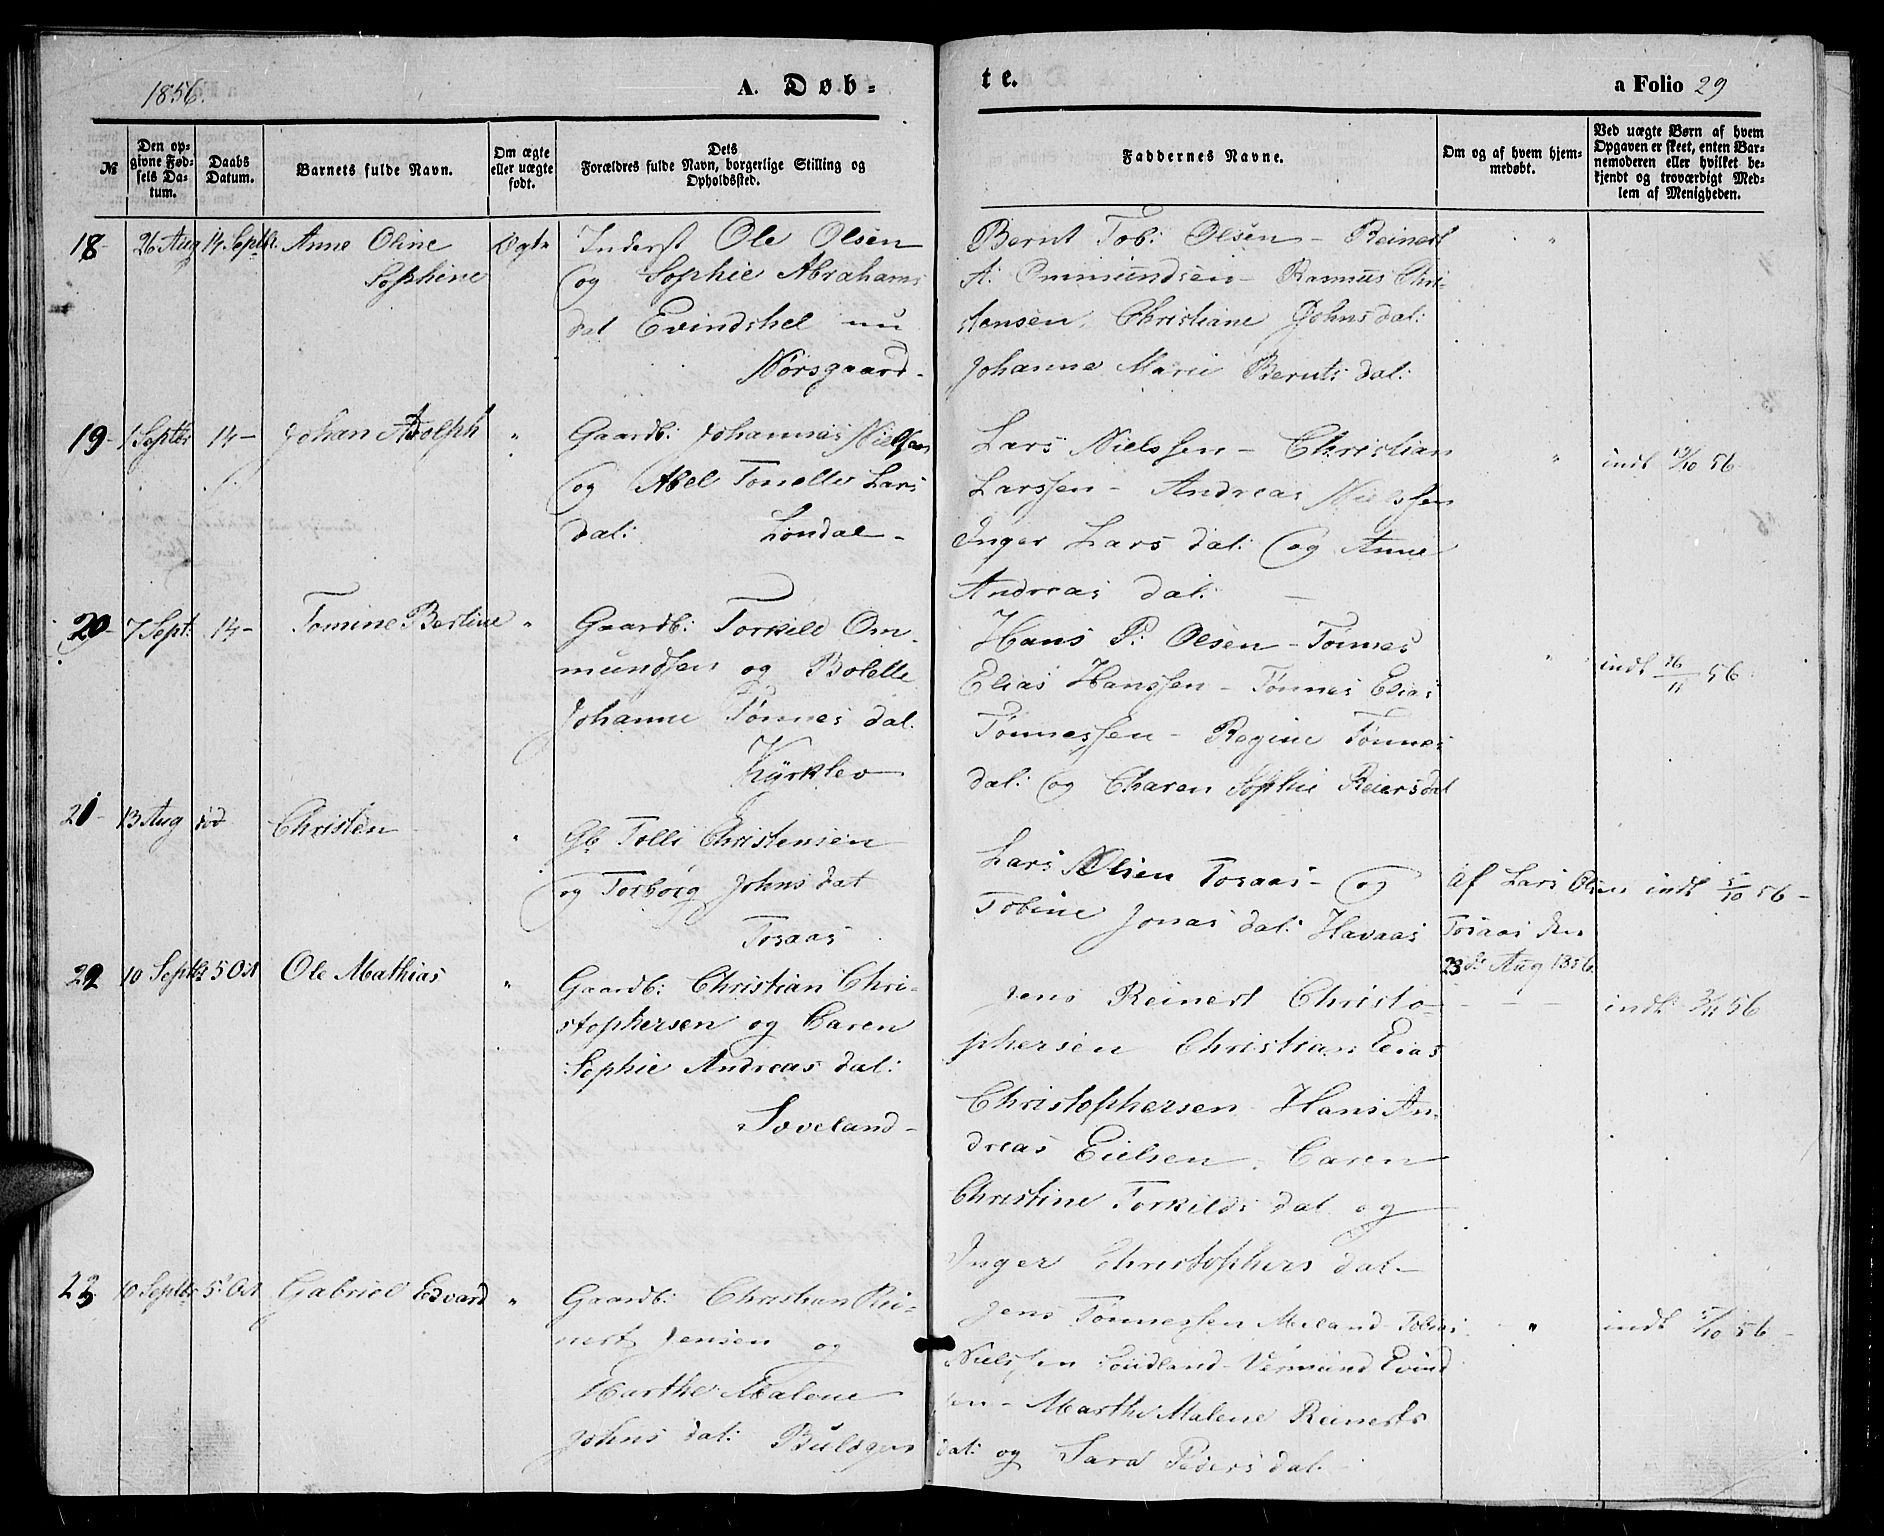 1856.
A. Døb-
te.
a Folio 29
№
Den opgivne Fødsels Datum.
Daabs Datum.
Barnets fulde Navn.
Om ægte eller uægte født.
Dets Forældres fulde Navn, borgerlige Stilling og Opholdssted.
Faddernes Navne.
Om og af hvem hjemmedøbt.
Ved uægte Børn af hvem Opgaven er skeet, enten Barnemoderen eller hvilket bekjendt og troværdigt Medlem af Menigheden.
18- 26 Aug 14 Septbr. Anne Oline Ægte Inderst Ole Olsen
Sophine og Sophie Abrahams
dat Evindshel nu
Nörsgaard-
Bernt Tob: Olsen - Reinert "
A: Ommundsen - Rasmus Chri-
stensen. Christiane Johns dal:
Johanne Marie Bernts dal:
19- 1 Septbr 14- Johan Adolph " Gaardb: Johannes Nielsen
og Abel Tonette Lars
dal: Londal-
Lars Nielssen - Christian " indt 19/10 56
Larssen - Andreas Nielssen
Inger Lars dal: og Anne
Andreas dal: -
20- 7 Sept: 14- Tomine Bertine " Gaardb: Torkild Om-
mundsen og Bolette
Johanne Tønnes dal.
Kyrklev
Hans P: Olsen - Tønnes " indt 16/11 56.
Elias Hanssen - Tønnes Elias
Tønnessen - Regine Tønnes
dal: og Charen Sophie Reiersdal
21- 13 Aug død Christen " Gb Tolli Christensen
og Torborg Johns dat
Tosaas
Lars Olsen Tosaas - og Af Lars Olsen indt 5/10 56-
Tobine Jonas dal: Havaas Tosaas den
23de Aug 1856.
22 10 Septbr 5 Oct Ole Mathias " Gaardb: Christian Chri-
stophersen og Caren
Sophie Andreas dal:
Soveland-
Jens Reinert Christo- - - - indt 2/11 56
phersen Christian Elias
Christophersen - Hans An-
dreas Eielsen. Caren
Christine Torkilds dal og
Inger Christophers dal-
23 10 Septbr 5 Oct Gabriel Edvard " Gaardb: Christian Rei-
nert Jensen og
Marthe Malene
Johns dal:
Jens Tønnessen Meland Tobias " indt 5/10 56-
Nielssen Vermund Evind
sen - Marthe Malene Reinerts
dal: og Sara Peders dal.